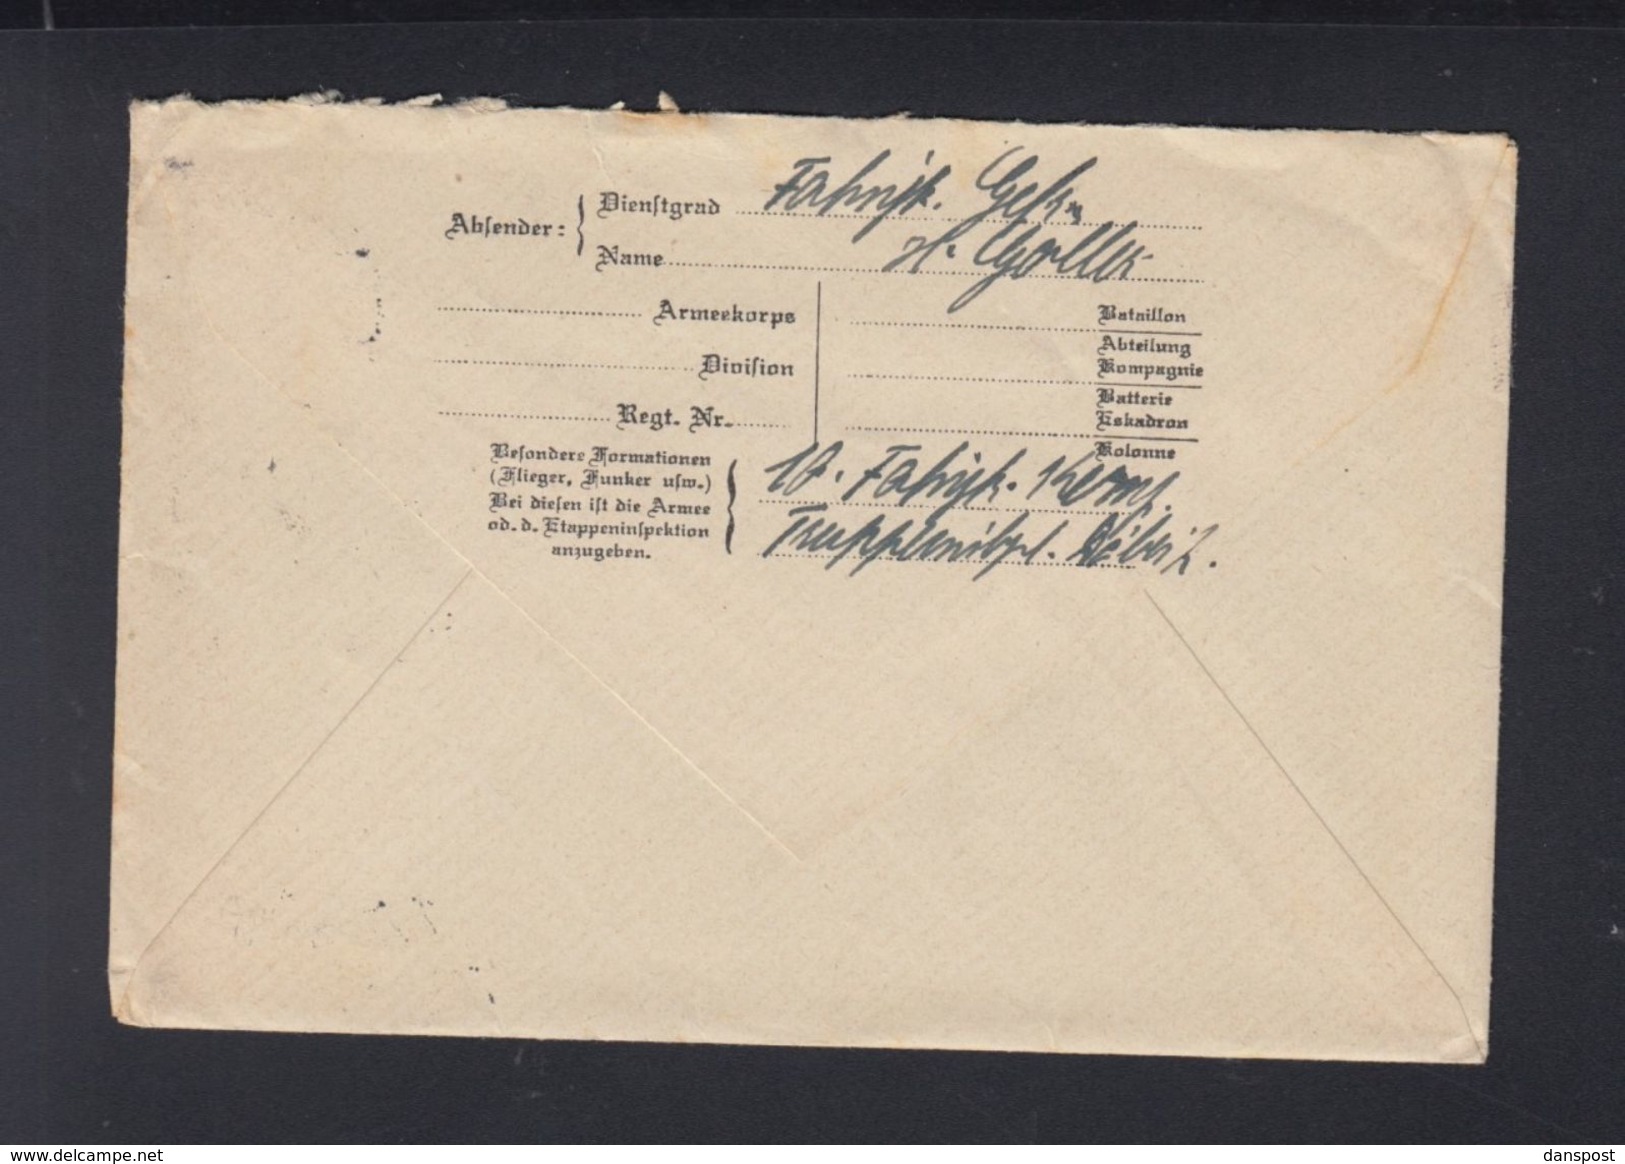 Absender: Dienstgrad Fahrjk. Gefr.
Name H. Goller
Armeekorps
Division
Regt. Nr.
Bataillon
Abteilung
Kompagnie
Batterie
Eskadron
Kolonne
Besondere Formationen
(Flieger, Funker usw.)
Bei diesen ist die Armee
od. d. Etappeninspektion
anzugeben.
10. Fahrjk. Komp.
Truppenübpl. Döberitz.
delcampe.net
danspost